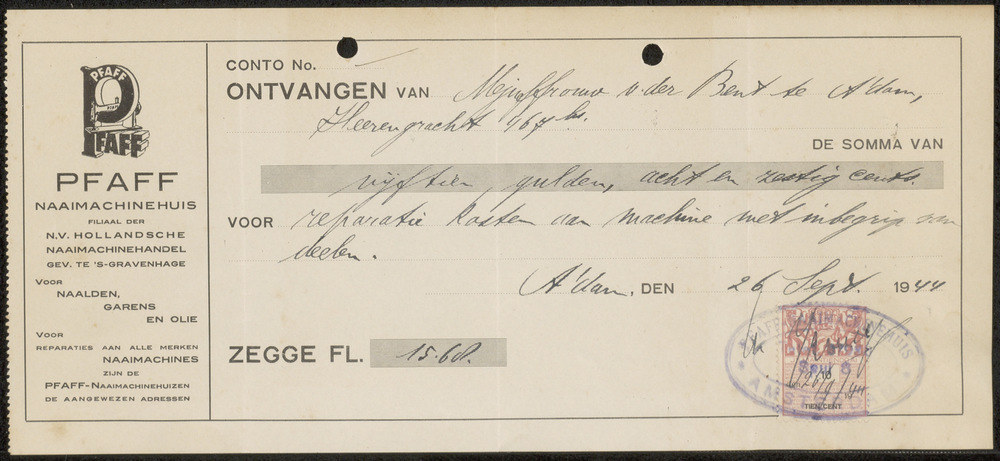 PFAFF
PFAFF
PFAFF
NAAIMACHINEHUIS
FILIAAL DER
N.V. HOLLANDSCHE
NAAIMACHINEHANDEL
GEV. TE 'S-GRAVENHAGE
VOOR
NAALDEN,
GARENS
EN OLIE
VOOR
REPARATIES AAN ALLE MERKEN
NAAIMACHINES
ZIJN DE
PFAFF-NAAIMACHINEHUIZEN
DE AANGEWEZEN ADRESSEN
CONTO No.
ONTVANGEN VAN Mejuffrouw v. der Bent te A'dam,
Heerengracht 467 hs.
DE SOMMA VAN
vijftien, gulden, acht en zestig cents.
VOOR reparatie kosten aan machine met inbegrip van
deelen.
A'dam. DEN 26 Sept. 1944
ZEGGE FL. 15.68.
10
26/9/'44
TIEN CENT